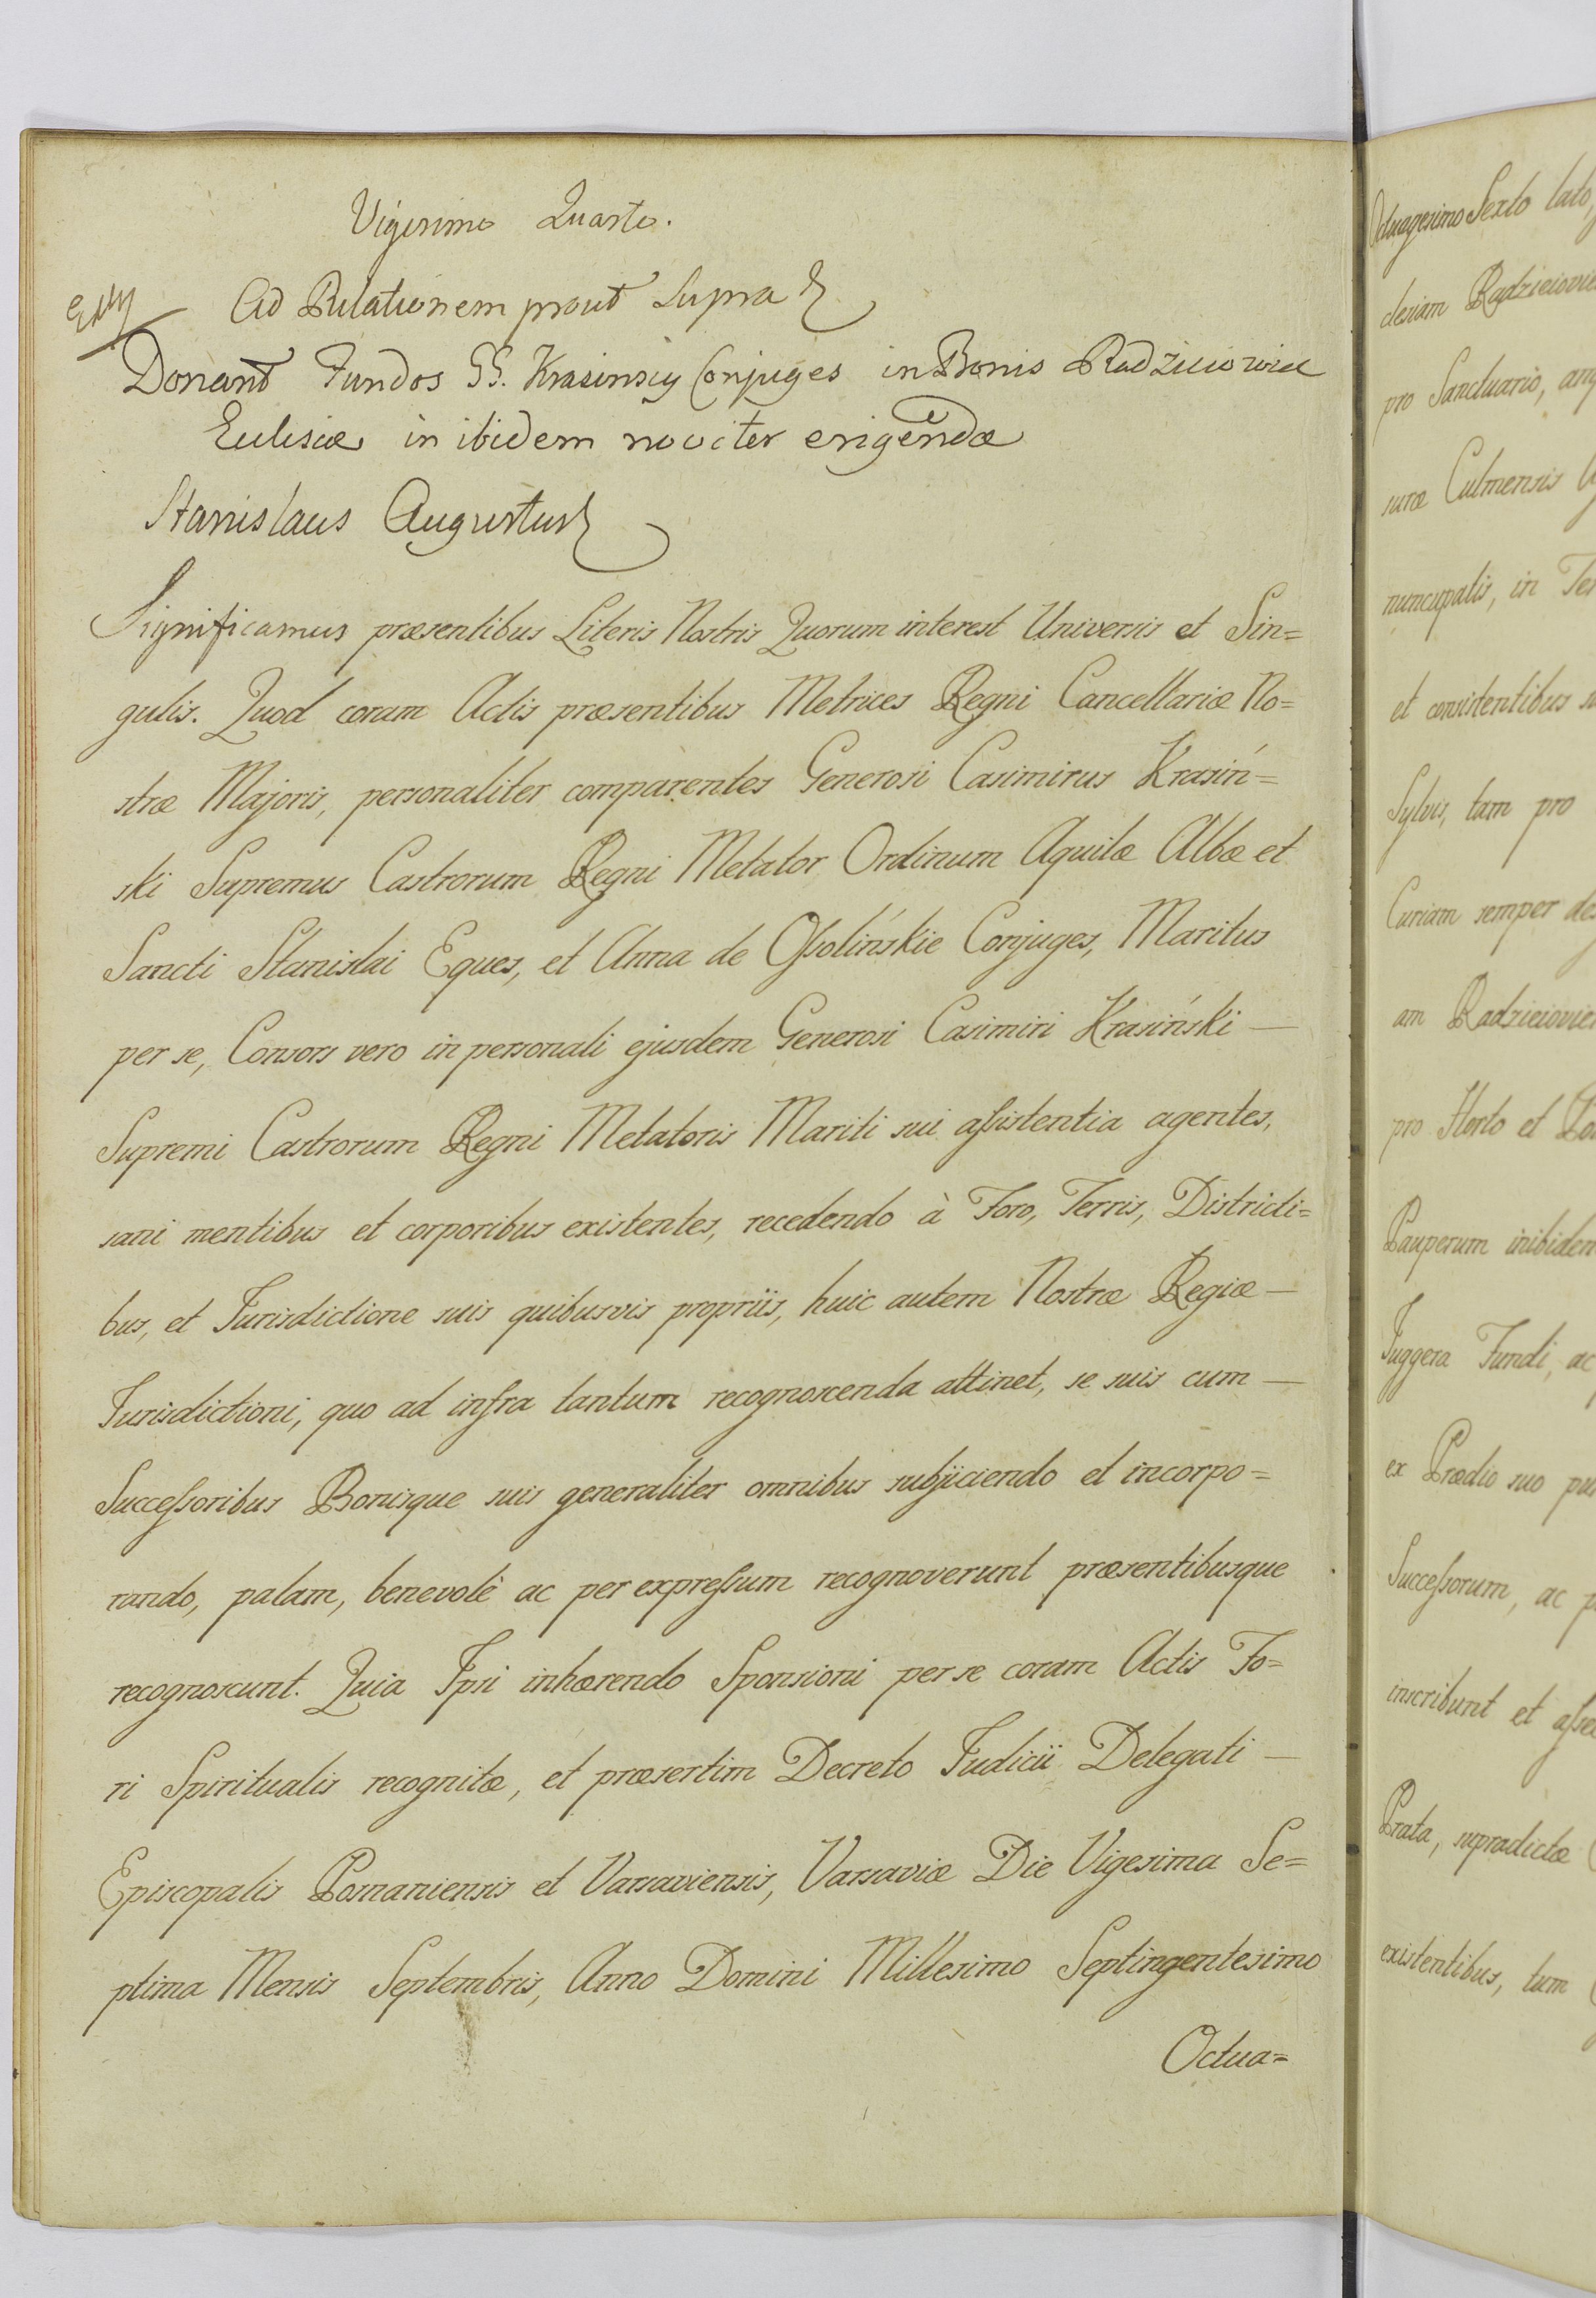 Vigesimo Quarto.
Ad Relationem prout supra
Donant Fundos GG. Krasinscy Conjuges in Bonis Radziejowice
Eclesiæ in ibidem noviter erigendæ
Stanislaus Augustus
Significamus præsentibus Literis Nostris Quorum interest Universis et Sin=
gulis. Quod coram Actis præsentibus Metrices Regni Cancellariæ No=
stræ Majoris, personaliter comparentes Generosi Casimirus Krasiń=
ski Supremus Castrorum Regni Metator Ordinum Aquilæ Albæ et
Sancti Stanislai Eques, et Anna de Ossolińskie Conjuges, Maritus
per se, Consors vero in personali ejusdem Generosi Casimiri Krasiński —
Supremi Castrorum Regni Metatoris Mariti sui assistentia agentes,
sani mentibus et corporibus existentes, recedendo à Foro, Terris, Districti=
bus, et Jurisdictione suis quibusvis propriis, huic autem Nostræ Regiæ —
Jurisdictioni, quo ad infra tantum recognoscenda attinet, se suis cum —
Successoribus Bonisque suis generaliter omnibus subjiciendo et incorpo=
rando, palam, benevolè ac per expressum recognoverunt præsentibusque
recognoscunt. Quia Ipsi inhærendo Sponsioni per se coram Actis Fo=
ri Spiritualis recognitæ, et præsertim Decreto Judicii Delegati —
Episcopalis Posnaniensis et Varsaviensis, Varsaviæ Die Vigesima Se=
ptima Mensis Septembris, Anno Domini Millesimo Septingentesimo
Octua=
ctuagesimo Sexto lato,
clesiam
pro Sanctuario,
suræ Culmensis
nuncupatis, in
et consistentibus
Sylvis, tam pro
Curiam semper
am
pro Horto et
Pauperum
Juggera Fundi, ac
ex Prædio suo
Successorum, ac
inscribunt et
Prata, supradictæ
existentibus, tum